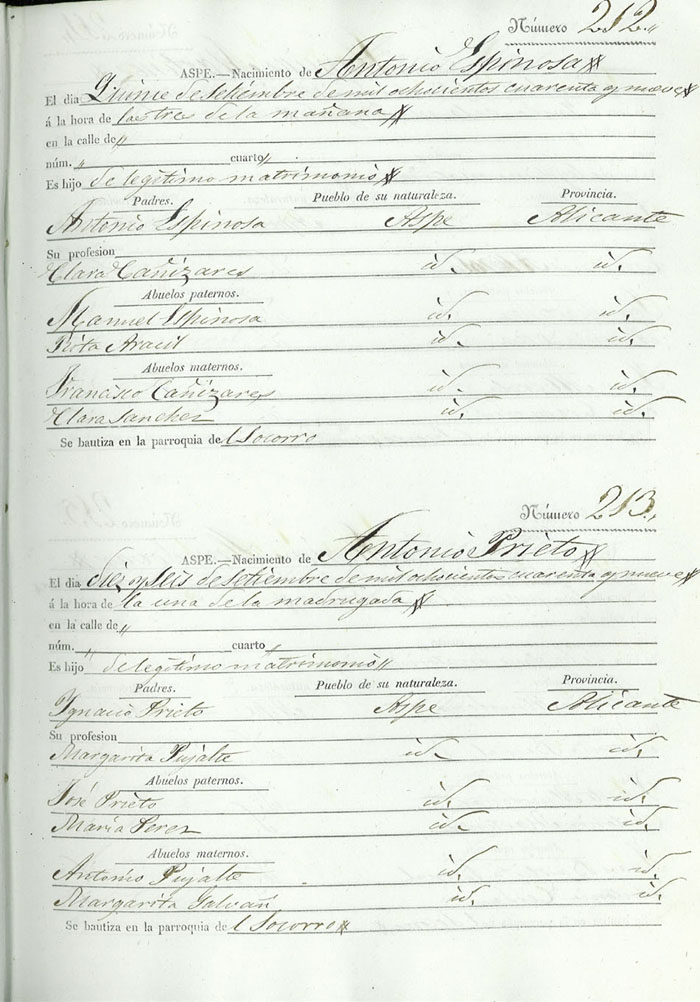 Número 212.
ASPE.—Nacimiento de Antonio Espinosa
El dia Quince de Setiembre de mil ochocientos cuarenta y nueve
á la hora de las tres de la mañana
en la calle de "
núm. " cuarto "
Es hijo de legitimo matrimonio
Padres. Pueblo de su naturaleza. Provincia.
Antonio Espinosa Aspe Alicante
Su profesion
Clara Cañizares id. id.
Abuelos paternos.
Manuel Espinosa id. id.
Rita Aracil id. id.
Abuelos maternos.
Francisco Cañizares id. id.
Clara Sanchez id. id.
Se bautiza en la parroquia del Socorro
Número 213.
ASPE.—Nacimiento de Antonio Prieto
El dia diez y seis de Setiembre de mil ochocientos cuarenta y nueve
á la hora de la una de la madrugada
en la calle de "
núm. " cuarto "
Es hijo de legitimo matrimonio
Padres. Pueblo de su naturaleza. Provincia.
Ignacio Prieto Aspe Alicante
Su profesion
Margarita Pujalte id. id.
Abuelos paternos.
José Prieto id. id.
Maria Perez id. id.
Abuelos maternos.
Antonio Pujalte id. id.
Margarita Galvañ id. id.
Se bautiza en la parroquia del Socorro